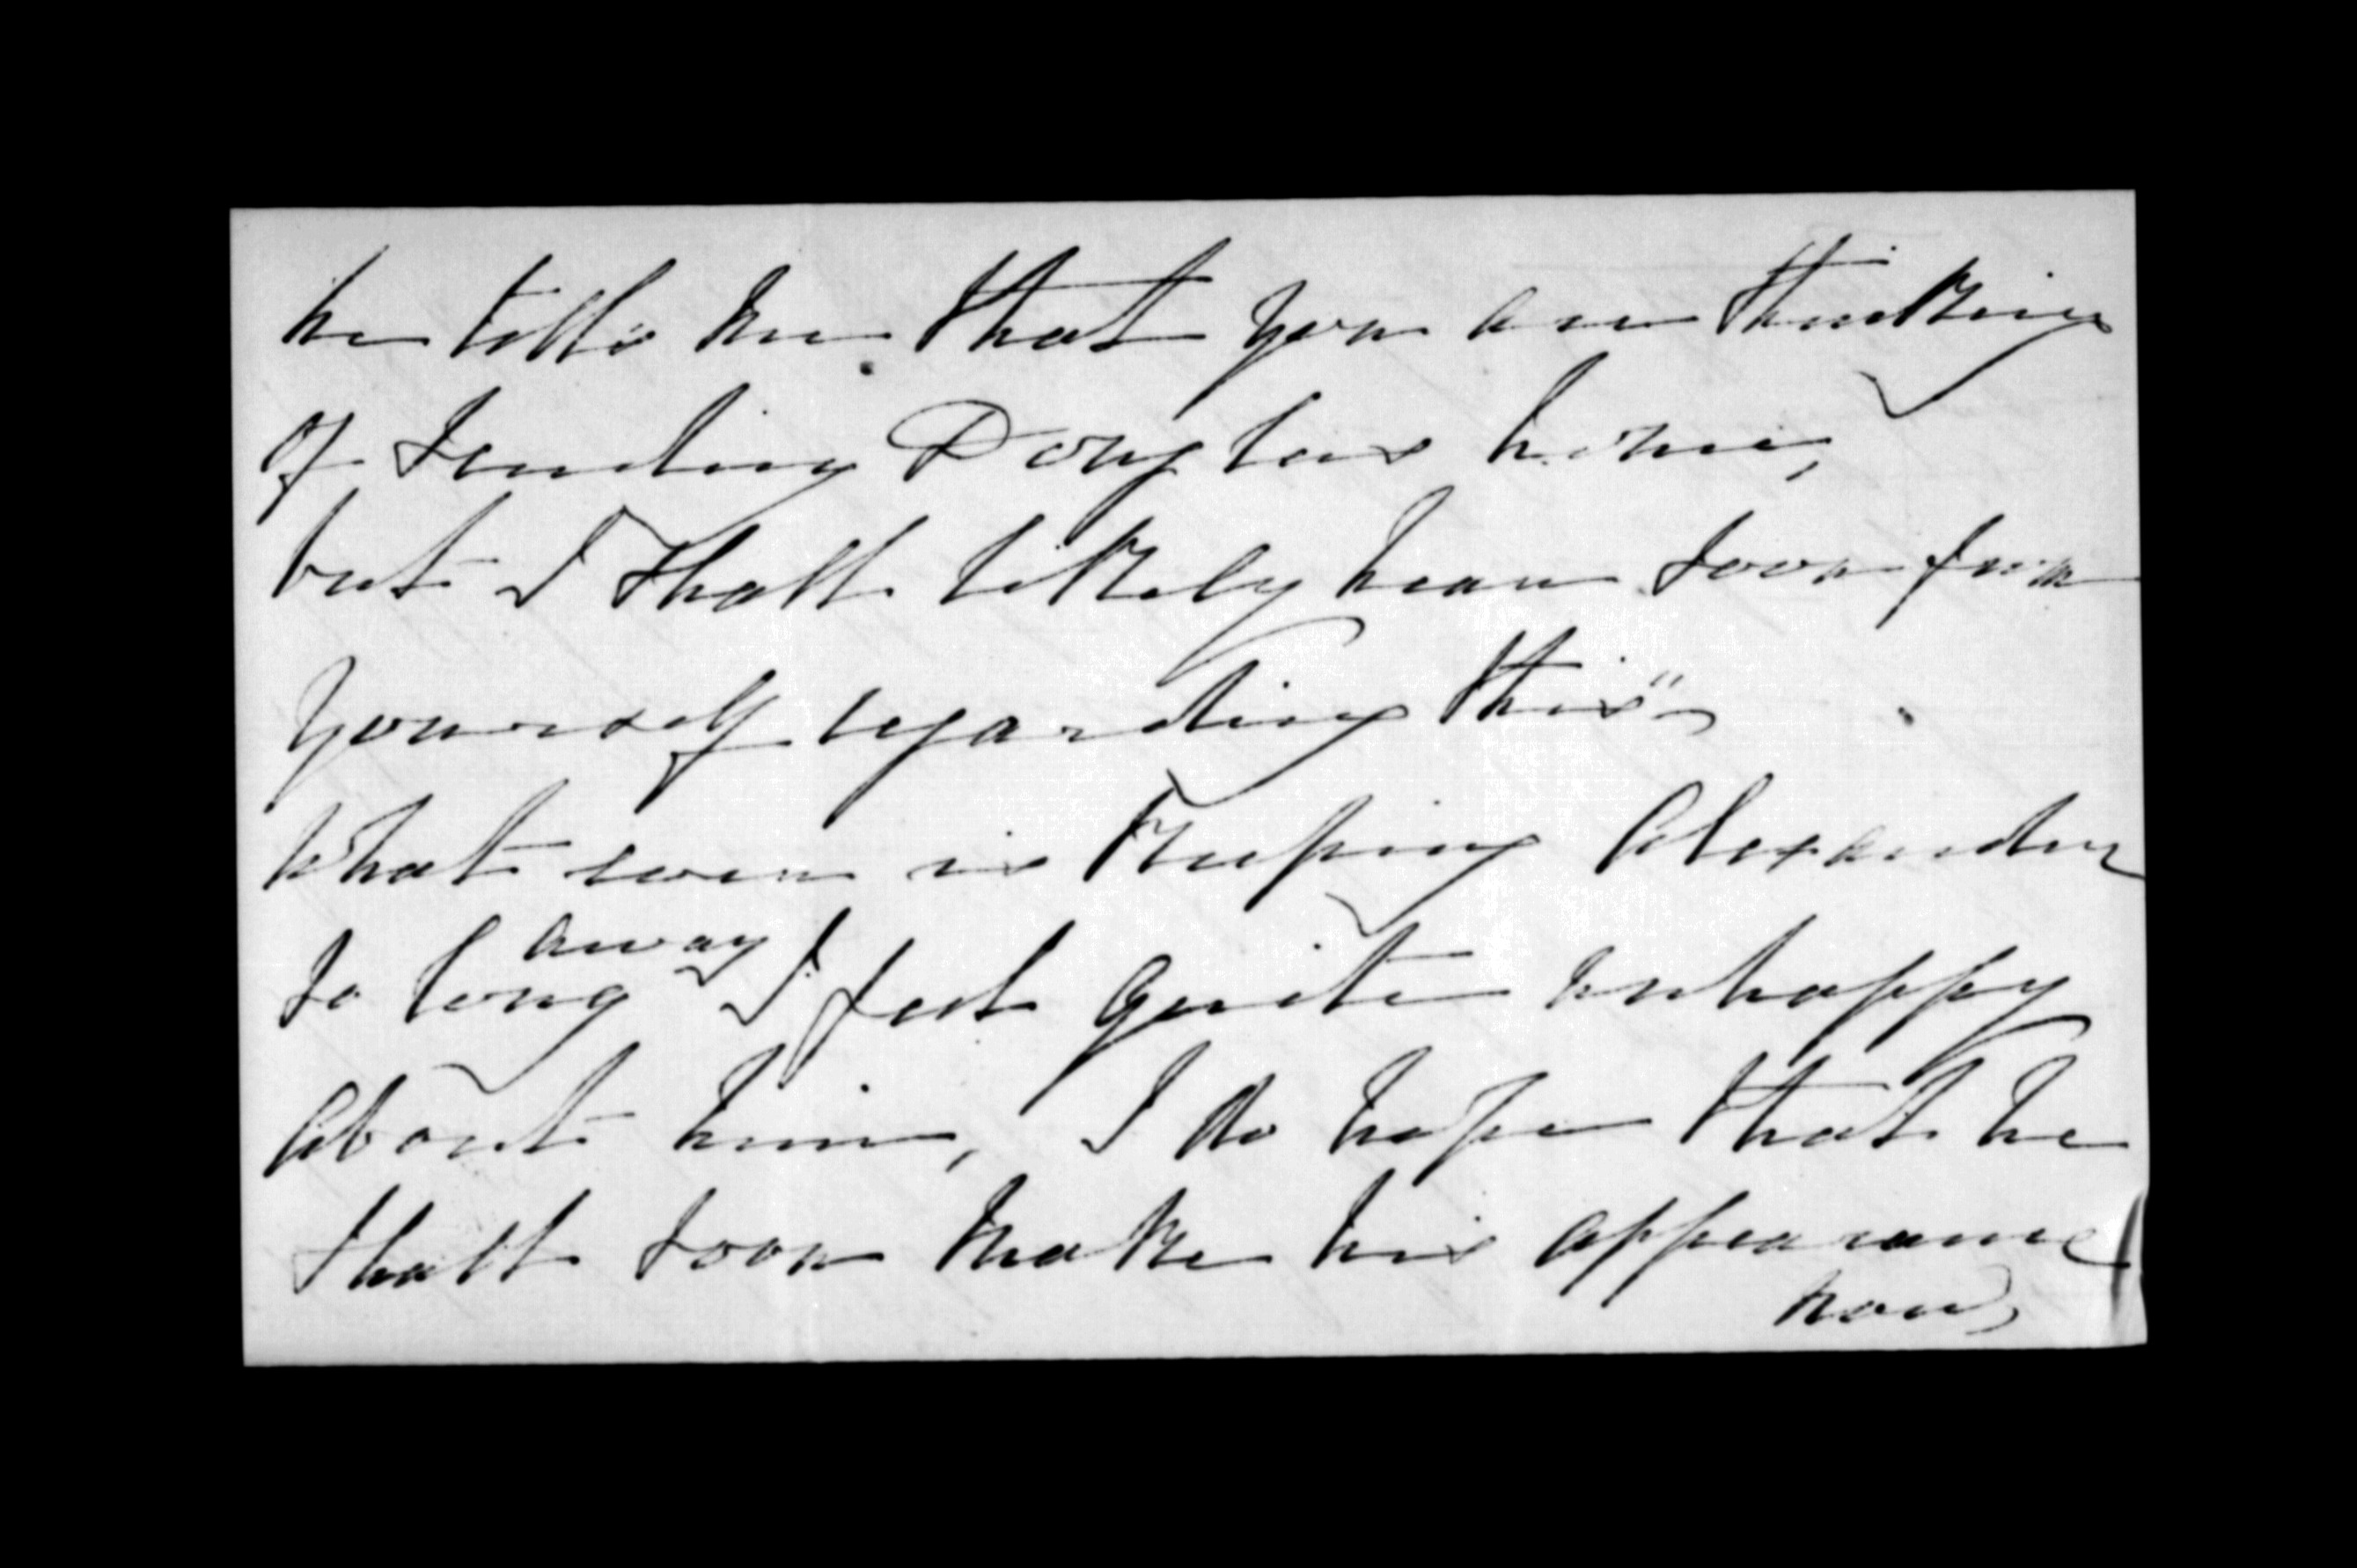 he tells me that you are thinking
of sending Douglas home,
but I shall likely hear soon from
yourself regarding this
what ever is keeping Alexander
so long away I feel quite unhappy
about him, I do hope that he
shall soon make his appearance
now,